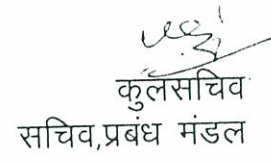 कुलसचिव
सचिव,प्रबंध मंडल